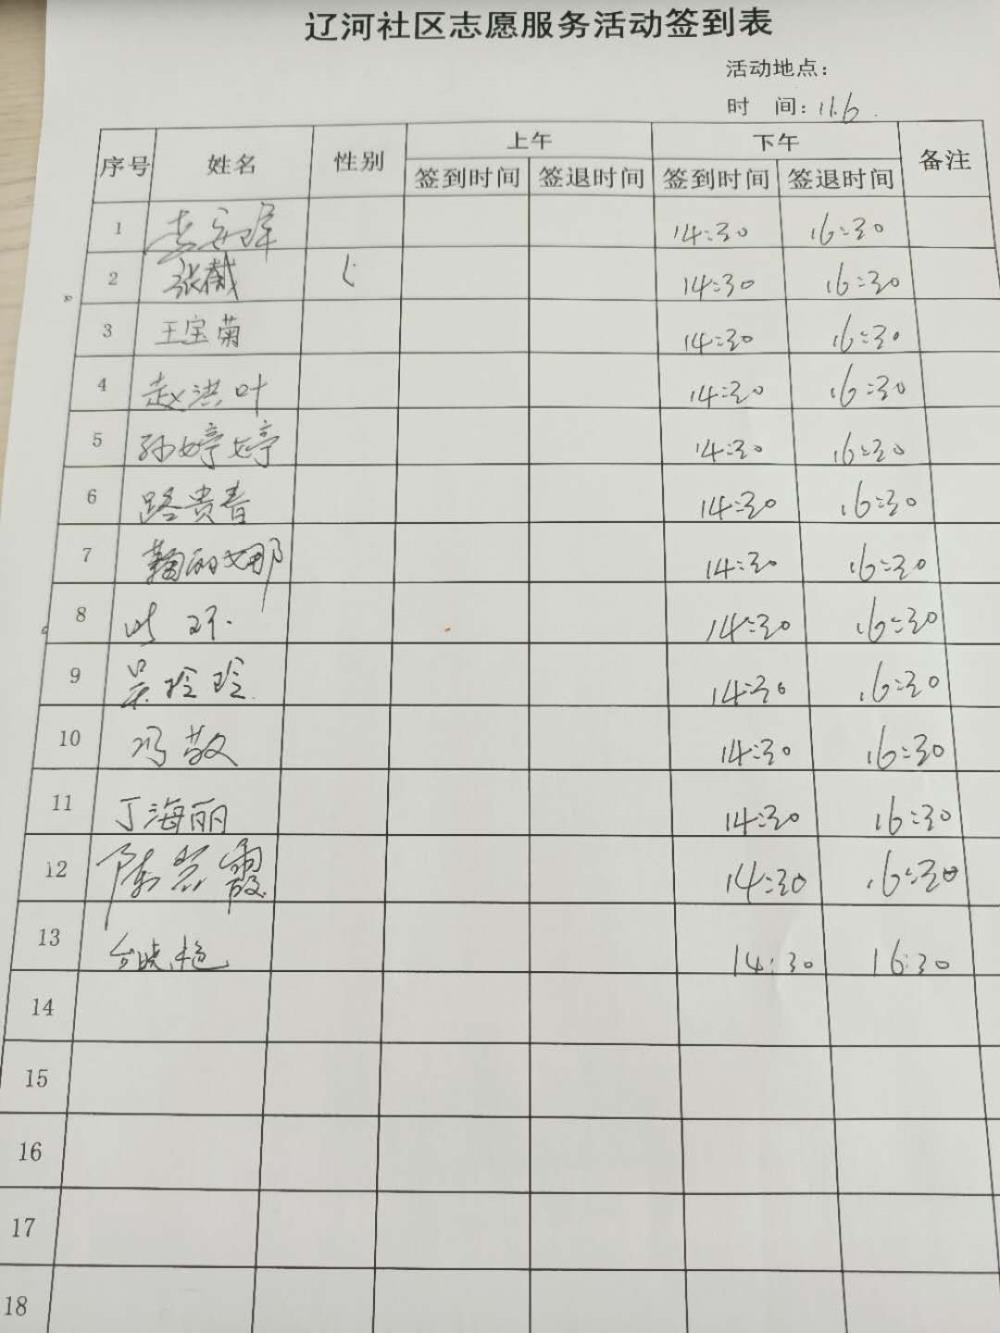 辽河社区志愿服务活动签到表
活动地点：
时 间：11.6
序号 姓名 性别 上午 下午 备注
签到时间 签退时间 签到时间 签退时间
1 14:30 16:30
2 14:30 16:30
3 王宝菊 14:30 16:30
4 赵洪叶 14:30 16:30
5 孙婷婷 14:30 16:30
6 路贵春 14:30 16:30
7 鞠丽娜 14:30 16:30
8 14:30 16:30
9 吴玲玲 14:30 16:30
10 冯敬 14:30 16:30
11 丁海丽 14:30 16:30
12 14:30 16:30
13 台晓艳 14:30 16:30
14
15
16
17
18